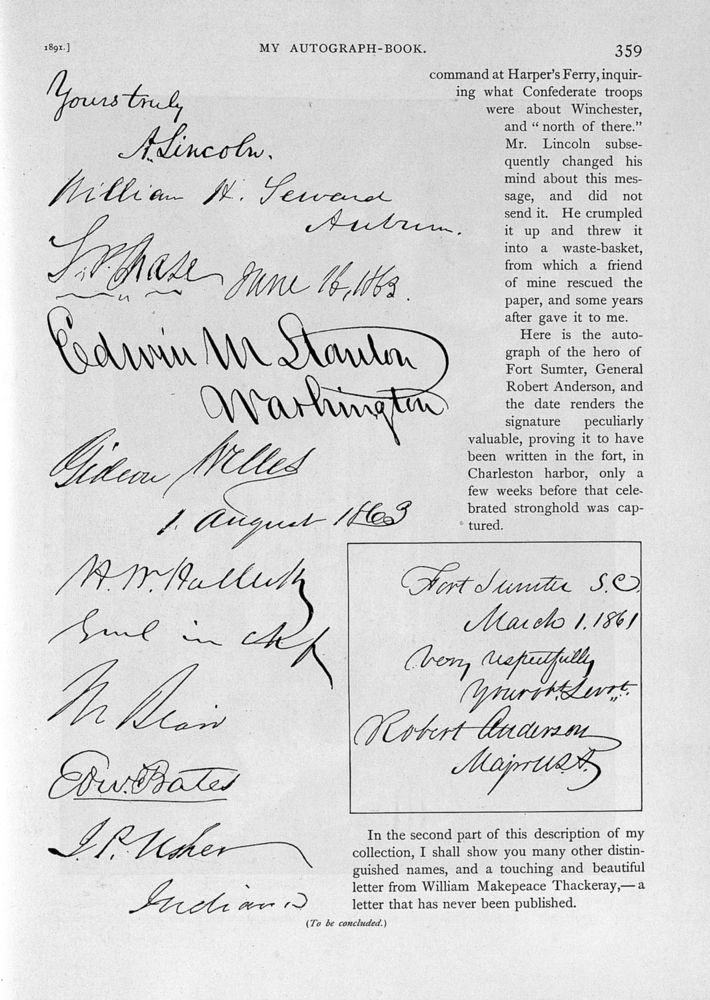 1891.] MY AUTOGRAPH-BOOK. 359
Yours truly
A. Lincoln.
William H. Seward
Auburn.
S. P. Chase June 16, 1863.
Edwin M Stanton
Washington
Gideon Welles
1. August 1863
H. W. Halleck
Genl in chf
M Blair
Edw. Bates
J. P. Usher
Indiana
command at Harper's Ferry, inquir-
ing what Confederate troops
were about Winchester,
and "north of there."
Mr. Lincoln subse-
quently changed his
mind about this mes-
sage, and did not
send it. He crumpled
it up and threw it
into a waste-basket,
from which a friend
of mine rescued the
paper, and some years
after gave it to me.
Here is the auto-
graph of the hero of
Fort Sumter, General
Robert Anderson, and
the date renders the
signature peculiarly
valuable, proving it to have
been written in the fort, in
Charleston harbor, only a
few weeks before that cele-
brated stronghold was cap-
tured.
Fort Sumter S.C.
March 1. 1861
Very respectfully
Your obt. Servt.
Robert Anderson
Major U.S.A.
In the second part of this description of my
collection, I shall show you many other distin-
guished names, and a touching and beautiful
letter from William Makepeace Thackeray,— a
letter that has never been published.
(To be concluded.)